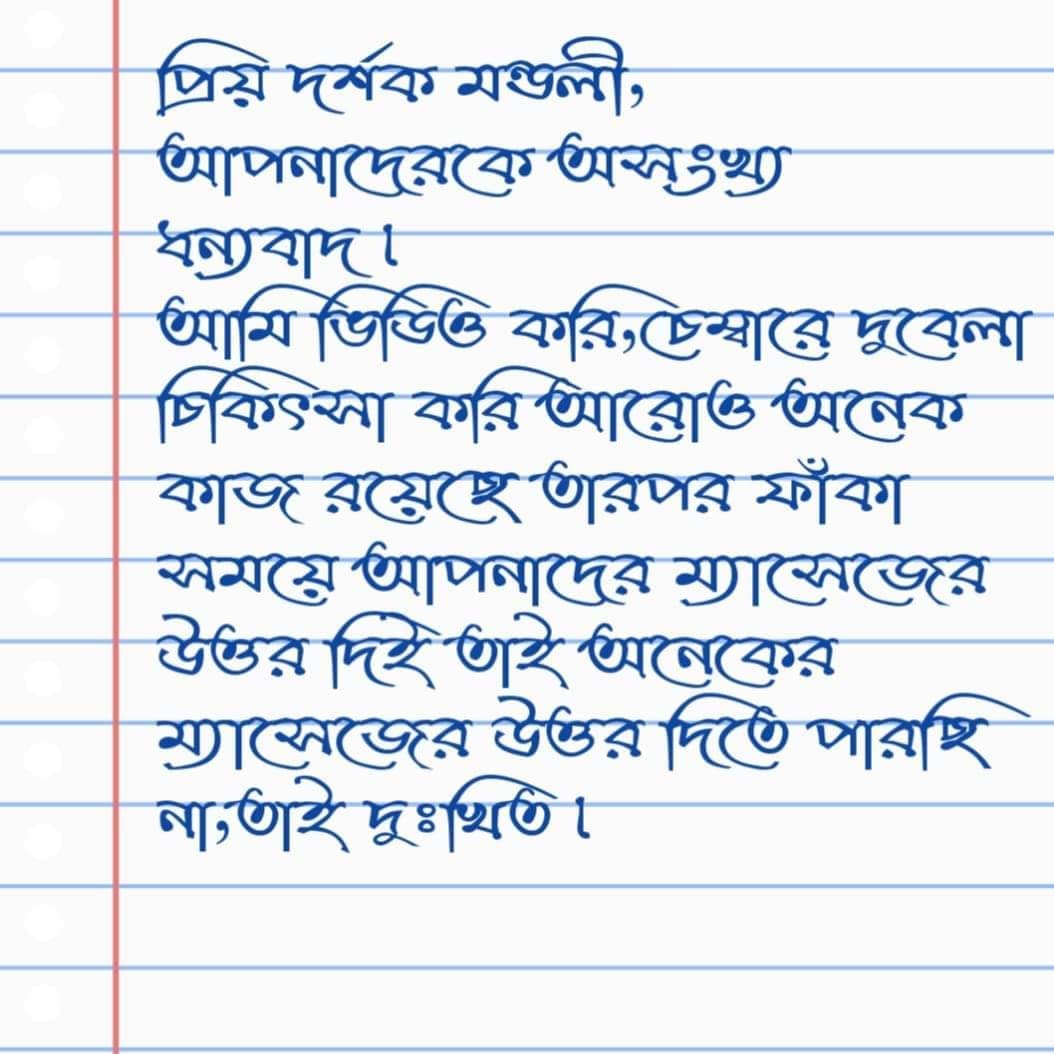 প্রিয় দর্শক মন্ডলী,
আপনাদেরকে অসংখ্য
ধন্যবাদ।
আমি ভিডিও করি,চেম্বারে দুবেলা
চিকিৎসা করি আরোও অনেক
কাজ রয়েছে তারপর ফাঁকা
সময়ে আপনাদের ম্যাসেজের
উত্তর দিই তাই অনেকের
ম্যাসেজের উত্তর দিতে পারছি
না,তাই দুঃখিত।